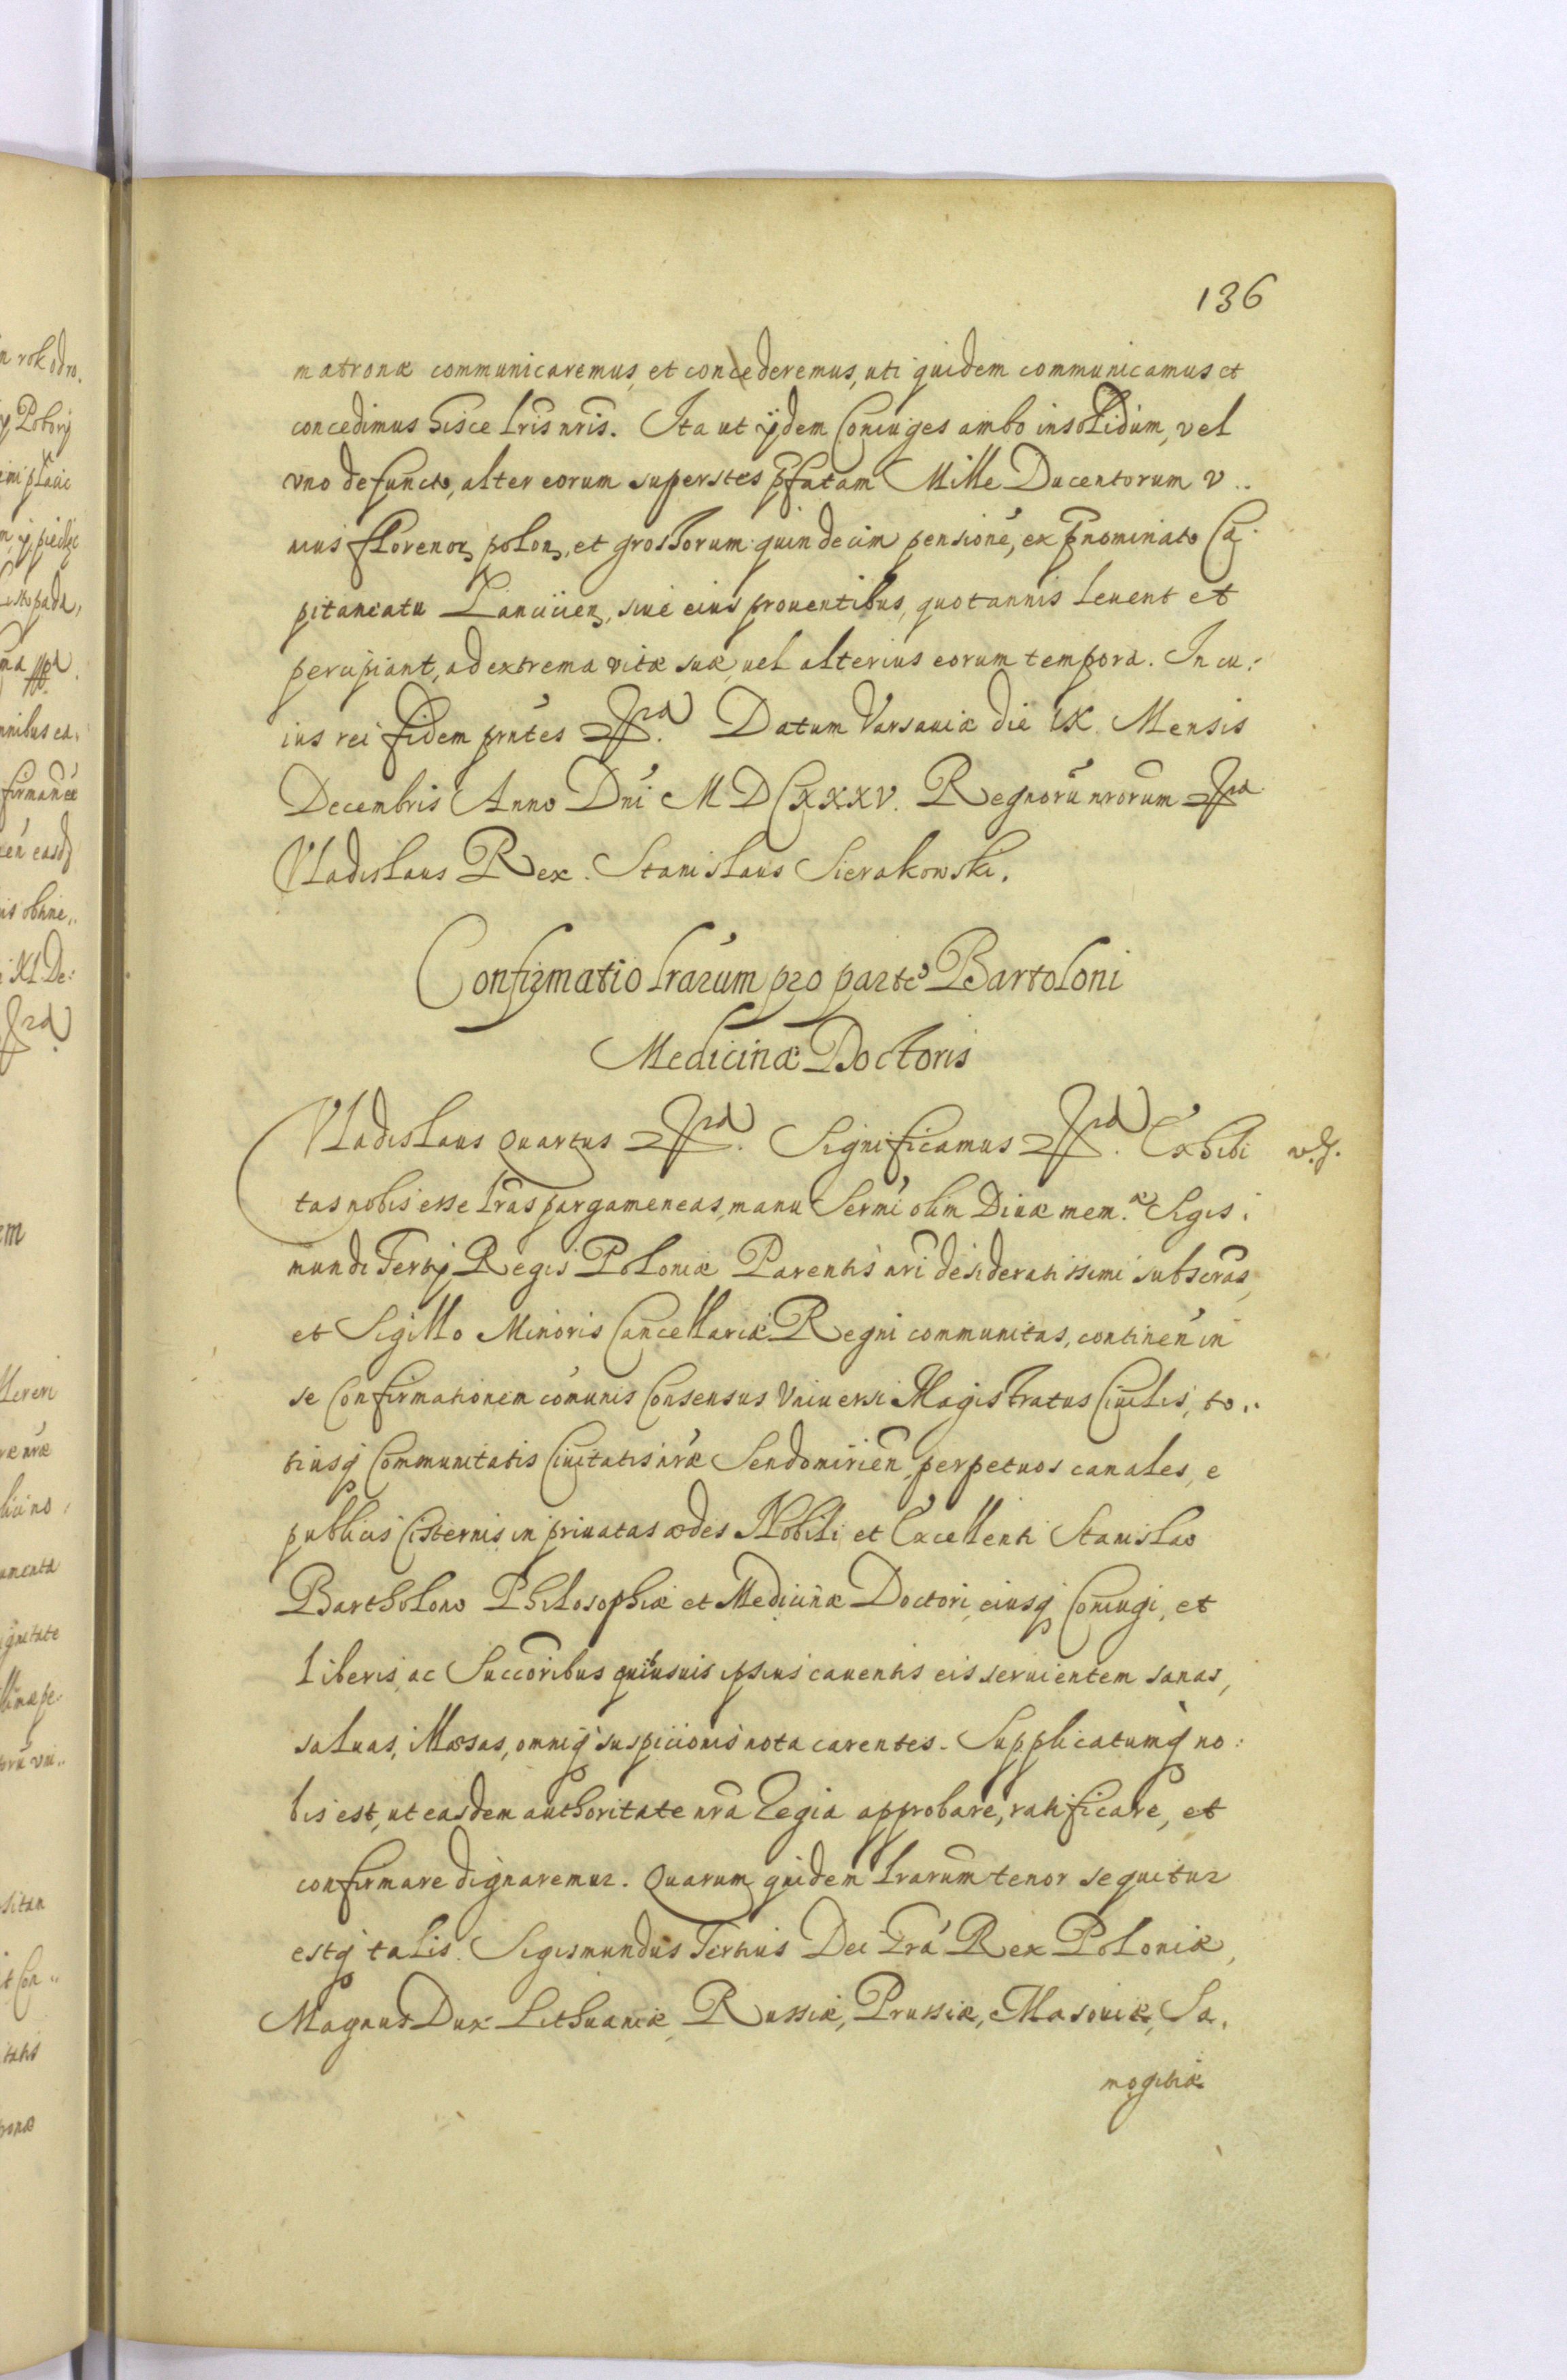 136
matronæ communicaremus, et concederemus, uti quidem communicamus et
concedimus hisce lr̃is nr̃is. Ita ut ijdem Coniuges ambo insolidum, vel
vno defuncto, alter eorum superstes p̃fatam Mille Ducentorum v..
nius florenor polon, et grossorum quindecim pensionē, ex p̃nominato Ca
pitaneatu Lanciien, siue eius prouentibus, quotannis leuent et
percipiant, ad extrema vitæ suæ, uel alterius eorum tempora. In cu:
ius rei fidem prñtes etc. Datum Varsauiæ die IX. Mensis
Decembris Anno Dñi MDCXXXV. Regnorũ nrorum etc
Vladislaus Rex. Stanislaus Sierakowski.
Confirmatio lrarum pro parte Bartoloni
Medicinæ Doctoris
Vladislaus Quartus etc. Significamus etc. Exhibi
tas nobis esse lr̃as pargameneas, manu Sermi olim Diuæ mem. Sigis:
mundi Tertij Regis Poloniæ Parentis nr̃i desideratissimi subscr̃as,
et Sigillo Minoris Cancellariæ Regni communitas, continen̄ in
se Confirmationem com̃unis Consensus Vniuersi Magistratus Ciuilis, to..
tiusq Communitatis Ciuitatis nr̃æ Sendomirien̄, perpetuos canales, e
publicis Cisternis in priuatas ædes Nobili et Excellenti Stanislao
Bartholono Philosophiæ et Medicinæ Doctori, eiusq Coniugi, et
liberis, ac Succoribus quibusuis ipsius cauentis eis seruientem sanas,
saluas, illæsas, omniq suspicionis nota carentes. Supplicatumq no:
bis est, ut easdem authoritate nr̃a Regia approbare, ratificare, et
confirmare dignaremur. Quarum quidem lrarum tenor sequitur
estq talis. Sigismundus Tertius Dei Grã Rex Poloniæ,
Magnus Dux Lithuaniæ, Russiæ, Prussiæ, Masouiæ, Sa,
mogitiæ